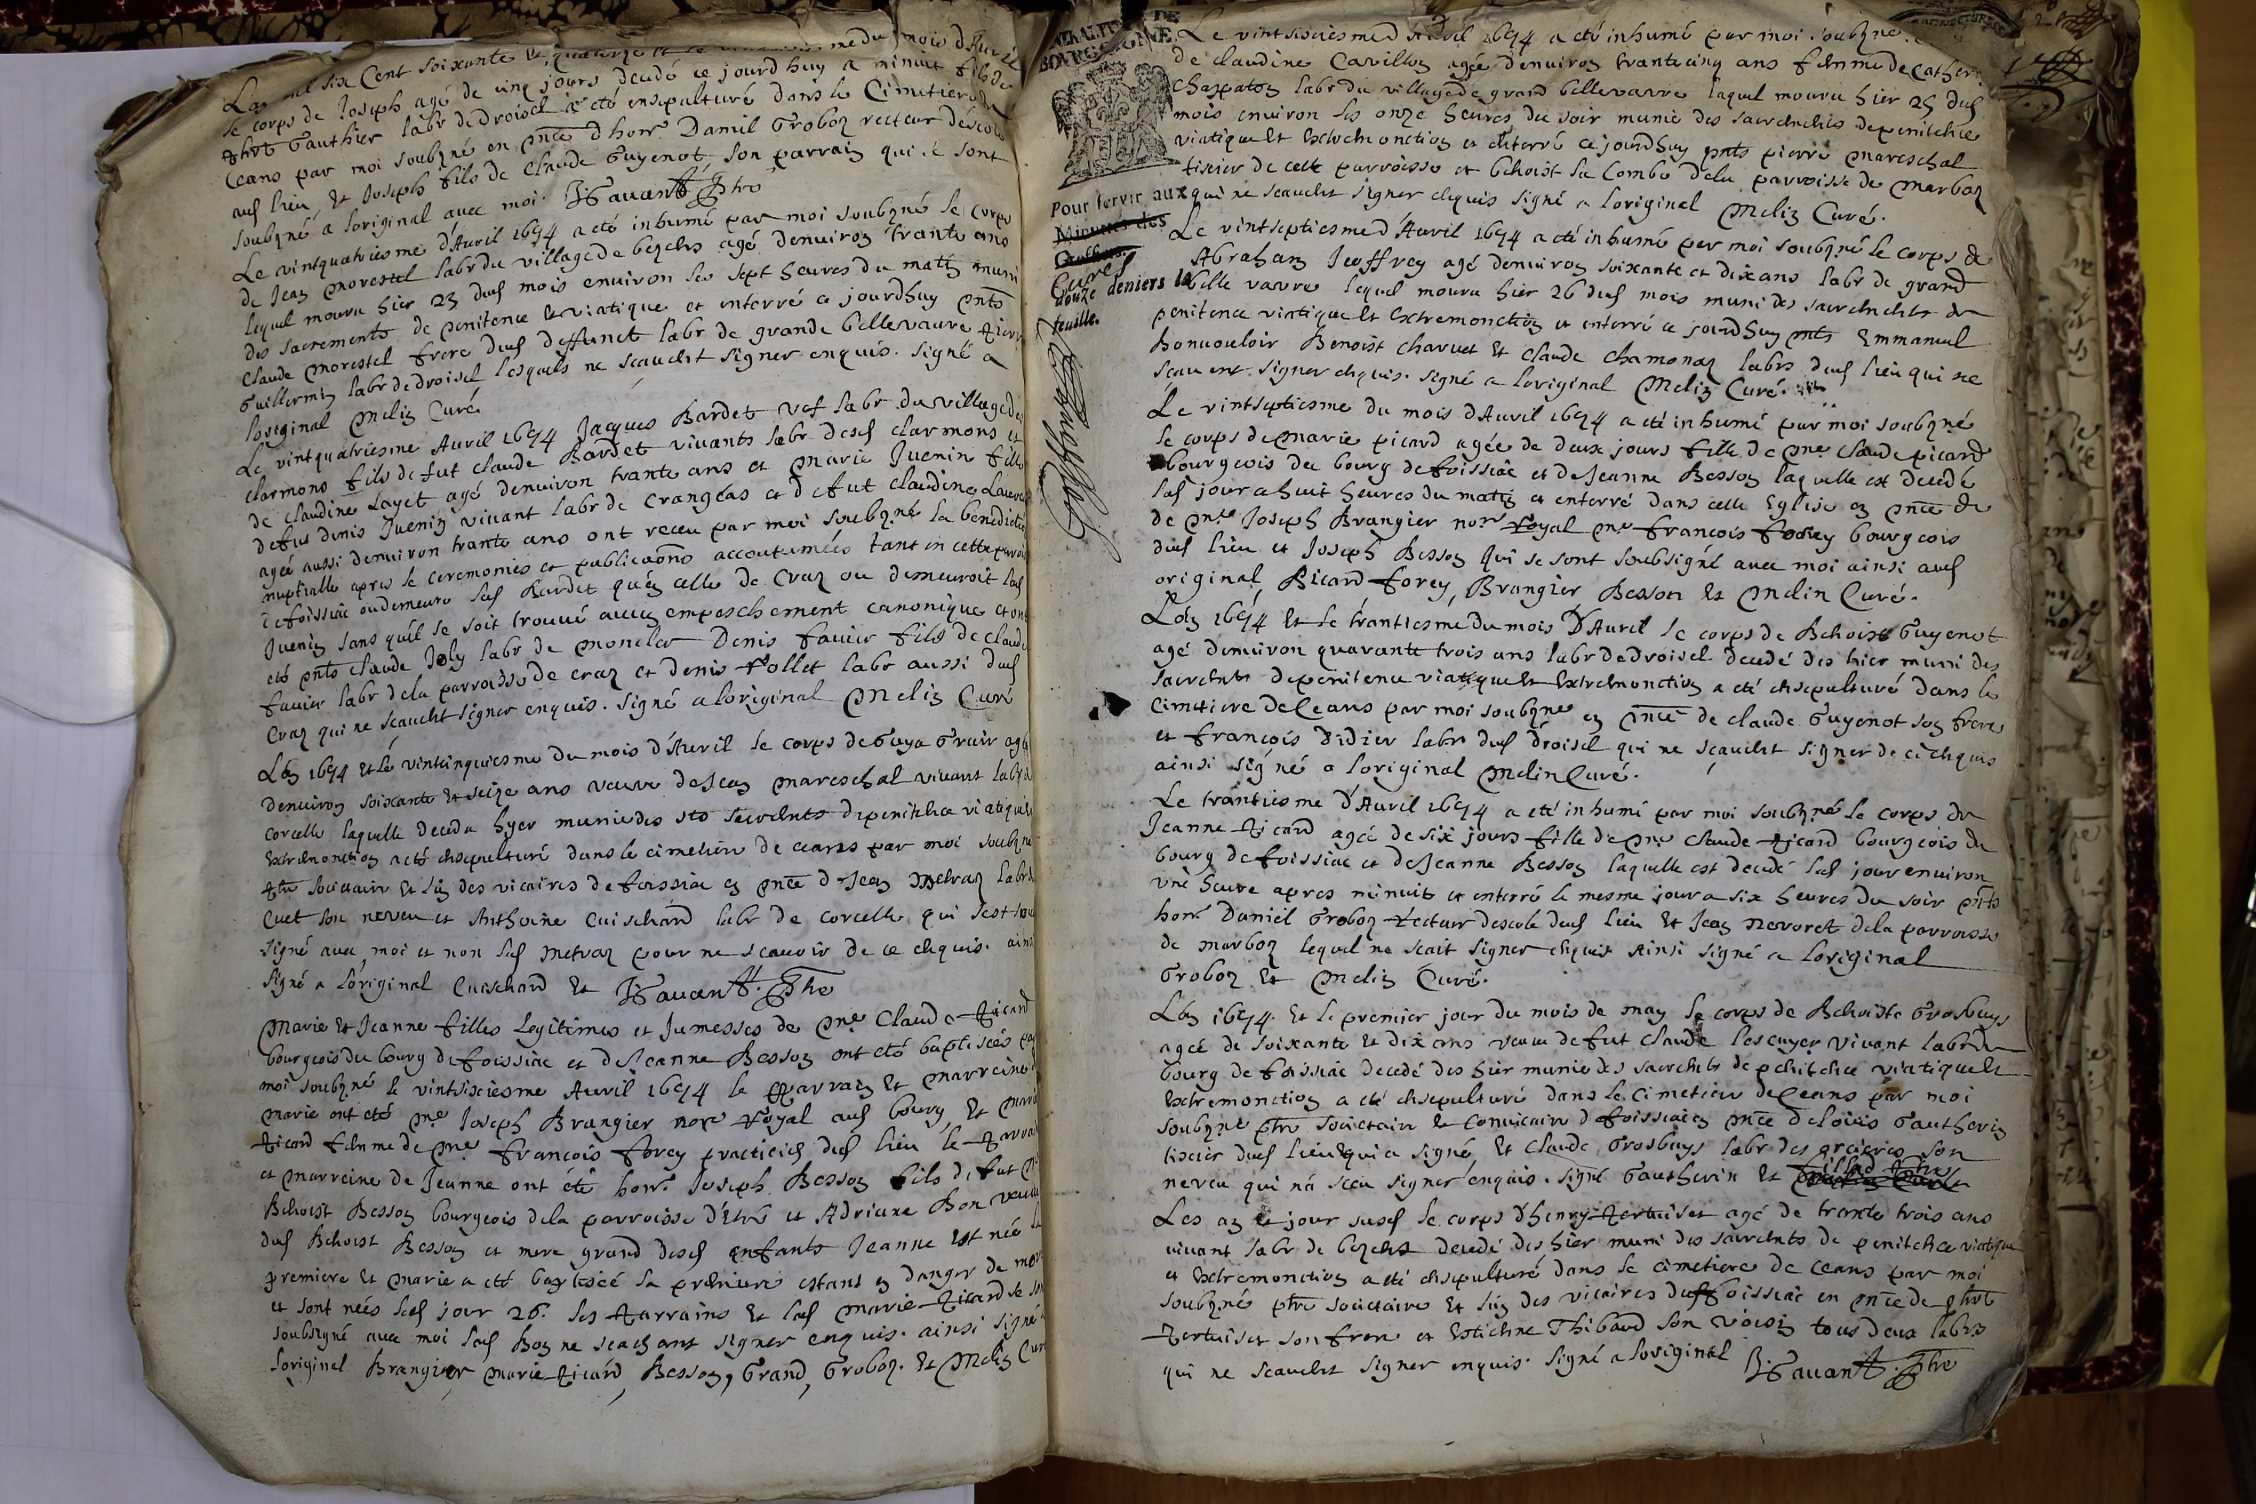 Lan mil six Cent soixante & quatorze et le me du mois d'Avril
le corps de Joseph agé de cinq jours decedé ce jourdhuy a minuit fils de
Phbt Gauthier labr de Droisel a eté ensepulturé dans le Cimetiere de
Ceans par moi soubzné en pnce d'honr Daniel Grobon recteur descole
aud lieu et Joseph fils de Claude Guyenot, son parrain qui se sont
soubzné a loriginal avec moi. Favant Ptre
Le vintquatriesme d'Avril 1694 a eté inhumé par moi soubzné le corps
de Jean Morestel labr du village de bezens agé denviron trante ans
lequel mouru hier 23 dud mois environ les sept heures du matin muni
des sacrements de penitence & viatique et enterré ce jourdhuy pnts
Claude Morestel frere dud deffunct labr de grande bellevavre Pierre
Guillermin labr de droisel lesquels ne scavent signer enquis. Signé a
loriginal Melin Curé
Le vintquatriesme Avril 1694 Jacques Bardet vef labr du village de
Clarmons fils de fut Claude Bardet vivants labr desd Clarmons et
de Claudine Layet agé denviron trante ans et Marie Juenin fille
defus Denis Juenin vivant labr de Crangeas et de fut Claudine
agée aussi denviron trante ans ont receu par moi soubzné la benediction
nuptialle apres le ceremonies et publicaōns accoutumées tant en cette
de foissiac ou demeure led Bardet qu'en celle de Craz ou demeuroit lad
Juenin sans qu'il se soit trouvé aucun empeschement canonique et ont
eté pnts Claude Joly labr de moncler Denis favier fils de Claude
favier labr dela parroisse de Craz et Denis Vollet labr aussi dud
Craz qui ne scavent signer enquis. Signé a loriginal Melin Curé
Lan 1694 et le vintcinquiesme du mois d'Avril le corps de Guya Gruir agée
denviron soixante & seize ans veuve de Jean Mareschal vivant labr a
Corcelle laquelle deceda hyer munie des sts sacrents de penitence viatique
Extremonction a eté ensepulturé dans le cimetiere de ceans par moi soubzné
Ptre societaire et l'un des vicaires de foissiac en pnce de Jean Metraz labr
Cuet son neveu et Anthoine Cuischard labr de corcelle qui sest sou
signé avec moi et non led Metraz pour ne scavoir de ce enquis. ainsi
signé a loriginal Cuischard et Favant. Ptre
Marie et Jeanne filles legitimes et Jumesses de Mre Claude Picard
bourgeois du bourg de foissiac et de Jeanne Besson ont eté baptisées par
moi soubzné le vintsixiesme Avril 1694 le Parrain et marreine de
Marie ont eté Mre Joseph Brangier nore royal aud bourg et Marie
Picard femme de Mre francois forey practicien dud lieu le Parrain
et marreine de Jeanne ont eté honr Joseph Besson fils de fut
Benoist Besson bourgeois dela parroisse d'Etré et Adriane Bon veuve
dud Benoist Besson et mere grand desd enfants Jeanne est née la
premiere et Marie a eté baptisée la premiere estans en danger de mort
et sont nées led jour 26. les Parrains et lad Marie Picard se sont
soubsigné avec moi lad Bon ne scachant signer enquis. ainsi signé a
loriginal Brangier, Marie Picard, Besson, Grand, Grobon. et Melin Curé
GENERALITE DE
BOURGOGNE
Pour servir aux
Minutes des
Greffiers
Curés
douze deniers la
feuille.
Le vintsixiesme d'Avril 1694 a eté inhumé par moi soubzné
de Claudine Cavillon agée denviron trantecinq ans femme de Catherin
Chapaton labr du village de grand bellevavre laquel mouru hier 25 dud
mois environ les onze heures du soir munie des sacrements de penitence
viatique et Extremonction et enterré ce jourdhuy pnts pierre Mareschal
tixier de cette parroisse et benoist la Combe dela parroisse de Marboz
qui ne scavent signer enquis signé a loriginal Melin Curé.
Le vintseptiesme d'Avril 1694 a eté inhumé par moi soubzné le corps de
Abraham Jeoffrey agé denviron soixante et dix ans labr de grand
belle vavre lequel mouru hier 26 dud mois muni des sacrements de
penitence viatique et Extremonction et enterré ce jourdhuy pnts Emmanuel
Bonvouloir Benoist Charvet et Claude Chamonaz labrs dud lieu qui ne
scavent signer enquis. signé a loriginal Melin Curé.
Le vintseptiesme du mois d'Avril 1694 a eté inhumé par moi soubzné
le corps de Marie picard agée de deux jours fille de Mre Claude picard
bourgeois du bourg de foissiac et de Jeanne Besson laquelle est decedé
led jour a huit heures du matin et enterré dans cette Eglise en pnce de
de Mre Joseph Brangier nore royal Mre francois forey bourgeois
dud lieu et Joseph Besson qui se sont soubsigné avec moi ainsi aud
original, Picard forey, Brangier Besson et Melin Curé.
Lan 1694 et le trantiesme du mois d'Avril le corps de Benoist Guyenot
agé denviron quarante trois ans labr de Droisel decedé des hier muni des
sacrents de penitence viatique et Extremonction a eté ensepulturé dans le
Cimetiere de Ceans par moi soubzné en pnce de Claude Guyenot son frere
et francois Didier labr dud droisel qui ne scavent signer de ce enquis
ainsi signé a loriginal Melin Curé.
Le trantiesme d'Avril 1694 a eté inhumé par moi soubzné le corps de
Jeanne Picard agée de six jours fille de Mre Claude Picard bourgeois du
bourg de foissiac et de Jeanne Besson laquelle est decedé led jour environ
une heure apres minuit et enterré le mesme jour a six heures du soir pnts
honr Daniel Grobon Recteur descole dud lieu et Jean Nevoret dela parroisse
de Marboz lequel ne scait signer enquis Ainsi signé a loriginal
Grobon et Melin Curé.
Lan 1694. et le premier jour du mois de may le corps de Benoiste Grosbuys
agée de soixante & dix ans veuve de fut Claude lescuyer vivant labr du
bourg de foissiac decedé des hier munie des sacrents de penitence viatique et
Extremonction a eté ensepulturé dans le Cimetiere de Ceans par moi
soubzné ptre societaire & Convicaire de foissiac en pnce de Louis Gautherin
tixier dud lieu qui a signé, et Claude Grosbuys labr des greieres son
neveu qui n'a sceu signer enquis. signé Gautherin et
Tillad Ptre
Les an & jour susd le corps d'henry Pertuiset agé de trante trois ans
vivant labr de bezens decedé des hier muni des sacrents de penitence viatique
et Extremonction a eté ensepulturé dans le cimetiere de ceans par moi
soubzné ptre societaire et l'un des vicaires dud foissiac en pnce de Phbt
Pertuiset son frere et Estienne Thibaud son voisin tous deux labrs
qui ne scavent signer enquis. signé a loriginal B. Favant. Ptre